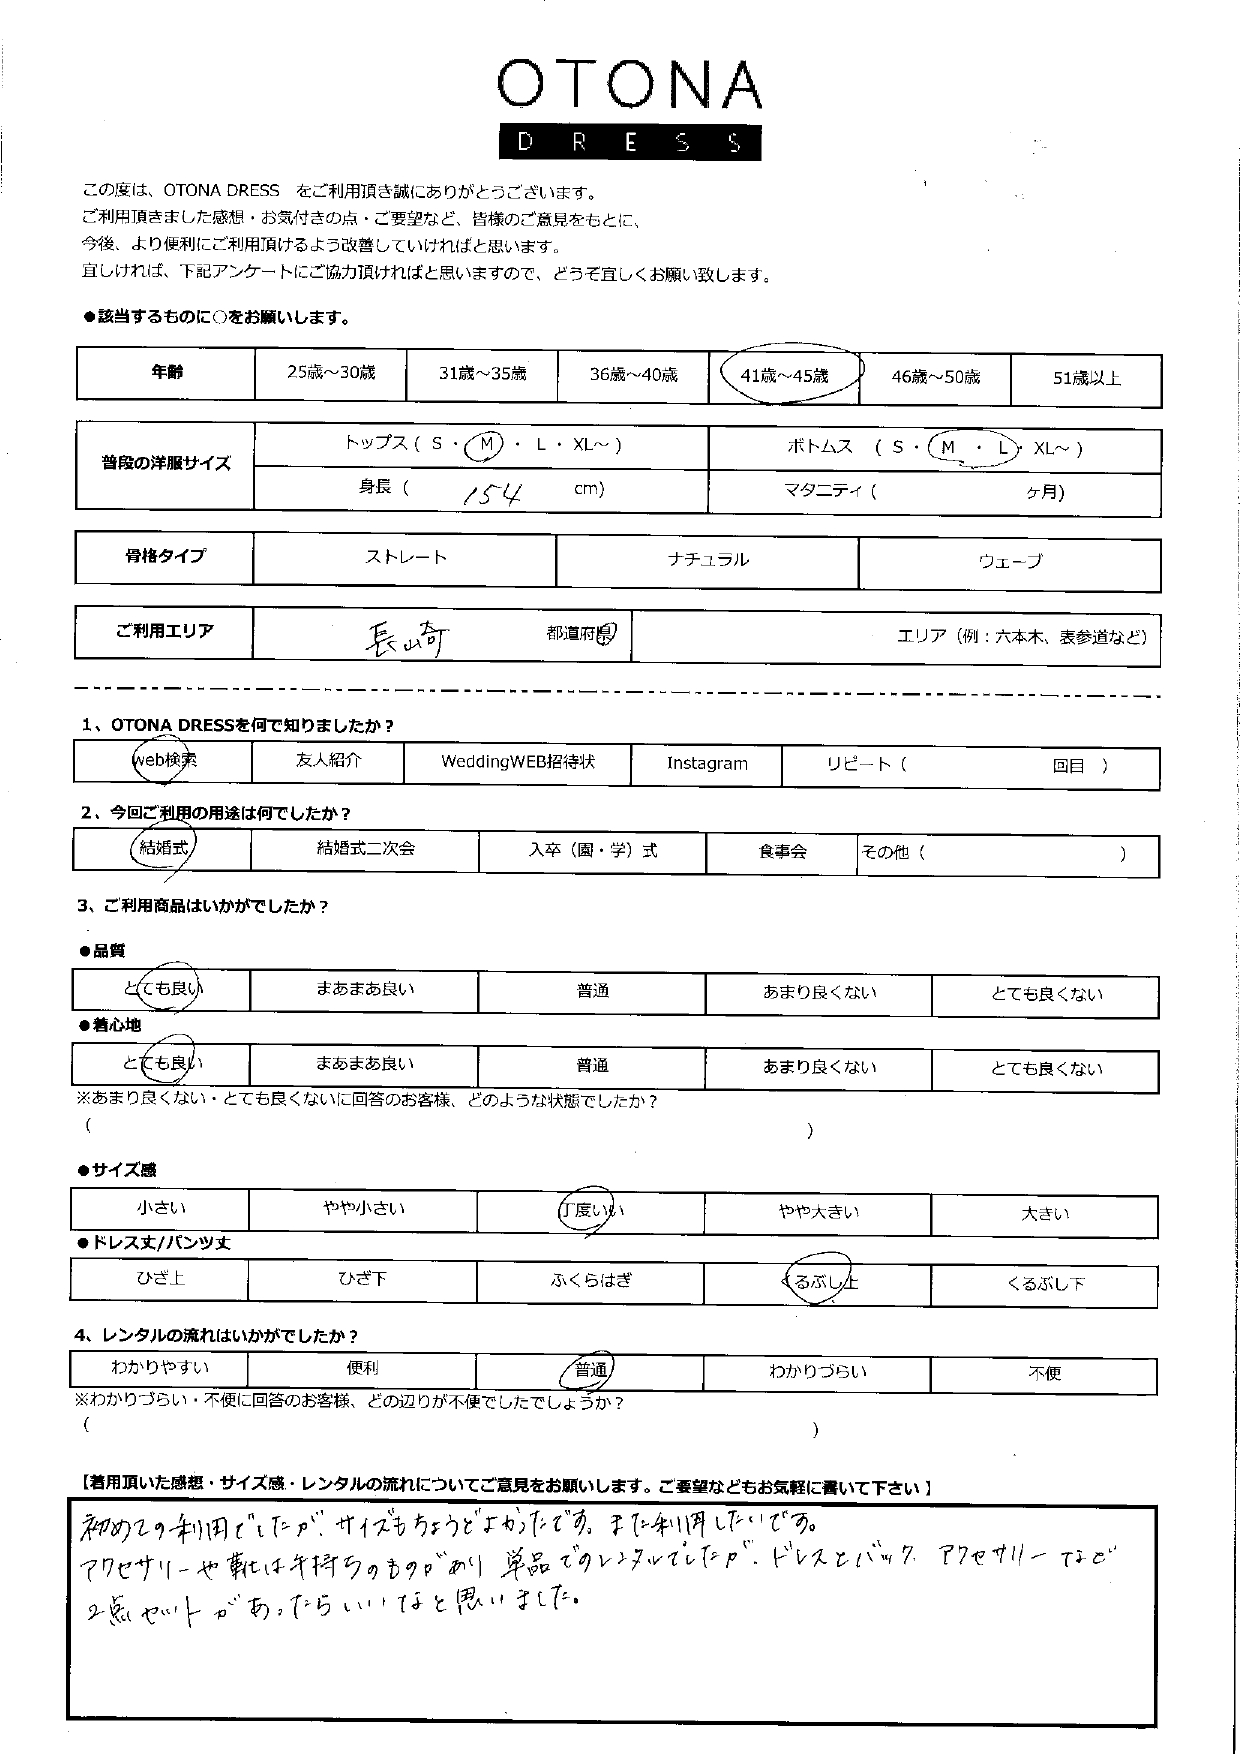 OTONA
DRESS
この度は、OTONA DRESS　をご利用頂き誠にありがとうございます。
ご利用頂きました感想・お気付きの点・ご要望など、皆様のご意見をもとに、
今後、より便利にご利用頂けるよう改善していければと思います。
宜しければ、下記アンケートにご協力頂ければと思いますので、どうぞ宜しくお願い致します。
●該当するものに○をお願いします。
年齢 25歳～30歳 31歳～35歳 36歳～40歳 41歳～45歳 46歳～50歳 51歳以上
普段の洋服サイズ トップス ( S ・ M ・ L ・ XL～ ) ボトムス ( S ・ M ・ L ・ XL～ )
身長 ( 154 cm) マタニティ ( ヶ月)
骨格タイプ ストレート ナチュラル ウェーブ
ご利用エリア 長崎 都道府県 エリア（例：六本木、表参道など）
1、OTONA DRESSを何で知りましたか？
web検索 友人紹介 WeddingWEB招待状 Instagram リピート ( 回目 )
2、今回ご利用の用途は何でしたか？
結婚式 結婚式二次会 入卒（園・学）式 食事会 その他 ( )
3、ご利用商品はいかがでしたか？
●品質
とても良い まあまあ良い 普通 あまり良くない とても良くない
●着心地
とても良い まあまあ良い 普通 あまり良くない とても良くない
※あまり良くない・とても良くないに回答のお客様、どのような状態でしたか？
( )
●サイズ感
小さい やや小さい 丁度いい やや大きい 大きい
●ドレス丈/パンツ丈
ひざ上 ひざ下 ふくらはぎ くるぶし上 くるぶし下
4、レンタルの流れはいかがでしたか？
わかりやすい 便利 普通 わかりづらい 不便
※わかりづらい・不便に回答のお客様、どの辺りが不便でしたでしょうか？
( )
【着用頂いた感想・サイズ感・レンタルの流れについてご意見をお願いします。ご要望などもお気軽に書いて下さい】
初めての利用でしたが、サイズもちょうどよかったです。また利用したいです。
アクセサリーや靴は手持ちのものがあり 単品でのレンタルでしたが、ドレスとバック、アクセサリーなど
2点セットがあったらいいなと思いました。